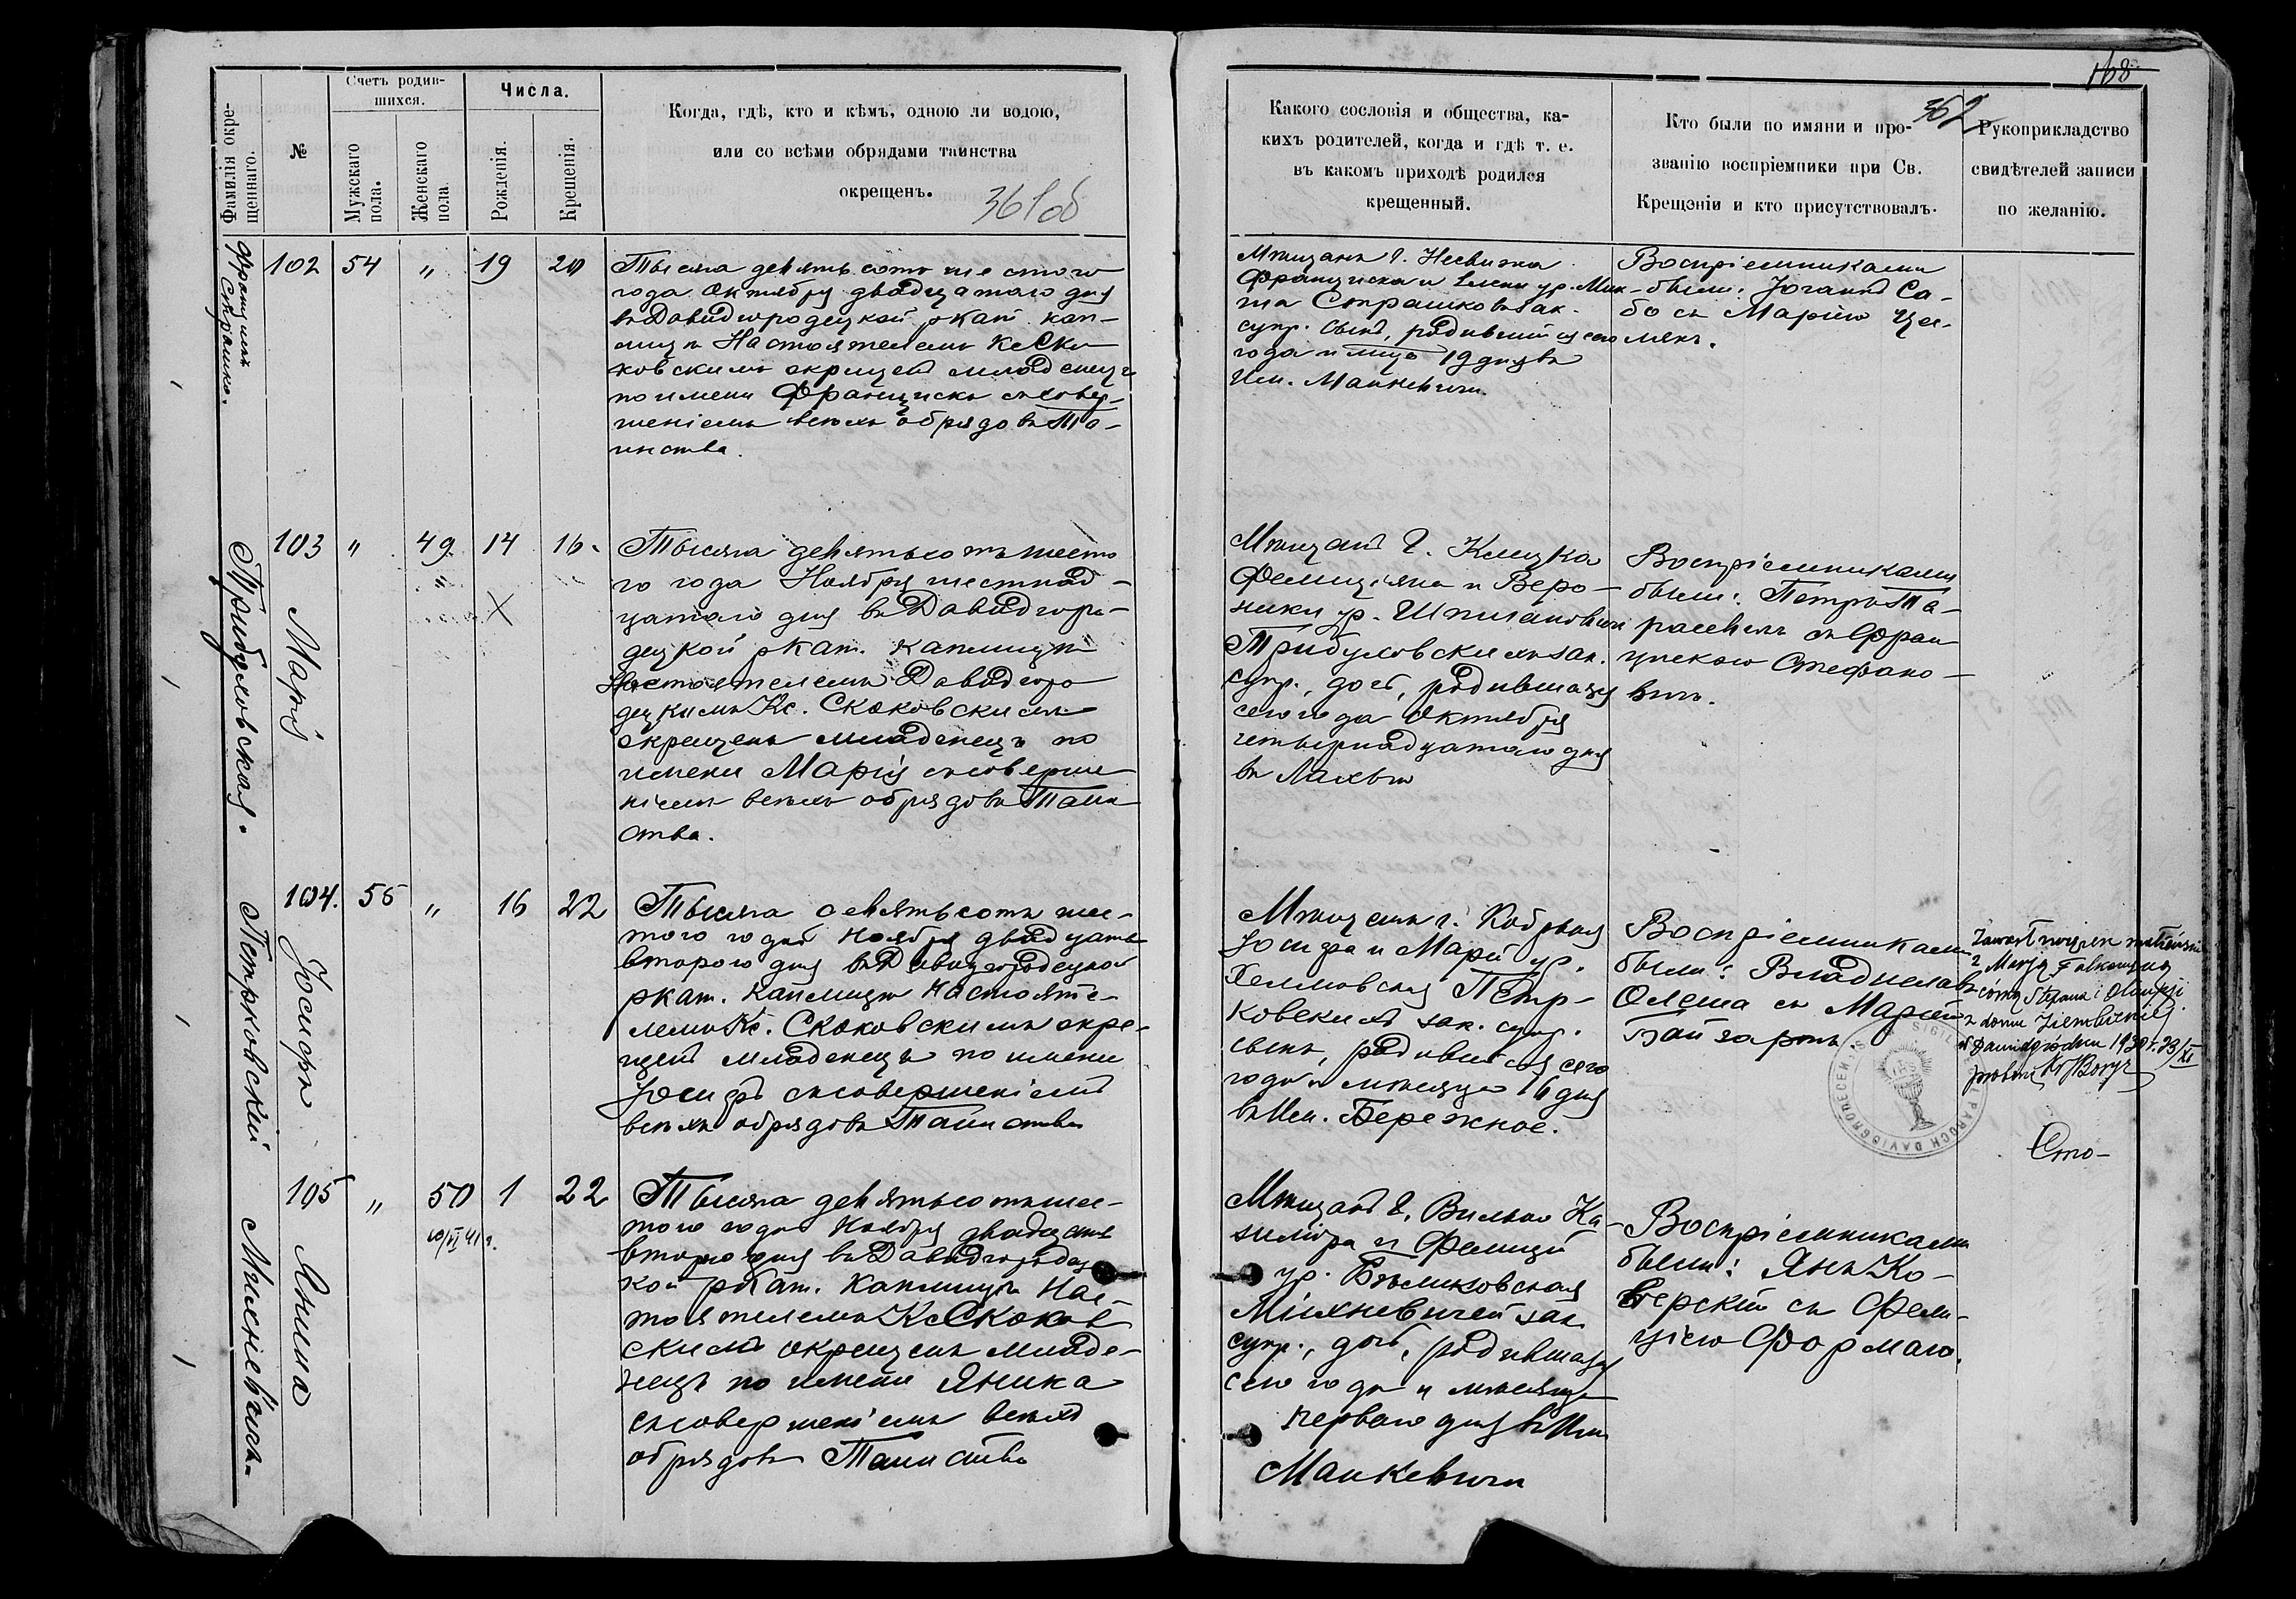 168
362
Фамилія окре-
щеннаго.
№
Счетъ родив-
шихся.
Мужскаго
пола.
Женскаго
пола.
Числа.
Рожденія.
Крещенія.
Когда, гдѣ, кто и кѣмъ, одною ли водою,
или со всѣми обрядами таинства
окрещенъ.
361об
Какого сословія и общества, ка-
кихъ родителей, когда и гдѣ т. е.
въ какомъ приходѣ родился
крещенный.
Кто были по имяни и про-
званію воспріемники при Св.
Крещэніи и кто присутствовалъ.
Рукоприкладство
свидѣтелей записи
по желанію.
Францишекъ
Страшко.
102 54 „ 19 20
Тысяча девятьсотъ шестого
года Октября двадцатаго дня
въ Давидгородецкой ркат. кап-
лицѣ Настоятелемъ Кс Ско
ковскимъ окрещенъ младенецъ
по имени Францискъ съ совер-
шеніемъ всехъ обрядовъ Та-
инства.
Мѣщанъ г. Несвижа
Франциска и Елены ур. Мик-
ша Страшковъ зак.
супр. сынъ, родившийся сего
года и мца 19 дня въ
Им. Манкевичи.
Воспріемниками
были: Іоганнъ Са-
бо съ Маріею Цы-
мякъ.
Трибуловская.
103 „ 49 14 16.
„
X
Марія
Тысяча девятьсотъ шесто
го года Ноября шестнад-
цатаго дня въ Давидгоро-
децкой ркат. каплицѣ
Настоятелемъ Давидгоро
децкимъ Кс. Скоковскимъ
окрещенъ младенецъ по
имени Марія съ соверше
ніемъ всехъ обрядовъ Таин
ства.
Мѣщанъ г. Клецка
Фелиціяна и Веро-
ники ур. Шпилановичъ
Трибуловскихъ зак.
супр., дочь, родившаяся
сего года Октября
четырнадцатаго дня
въ Лахвѣ
Воспріемниками
были: Петръ Та-
расевичъ съ Фран
цискою Стефано-
вичъ.
Петрковскій
104. 55 „ 16 22
Іосифъ
Тысяча девятьсотъ шес-
того года Ноября двадцать
второго дня въ Давидгородецкой
ркат. каплицѣ Настояте-
лемъ Кс. Скоковскимъ окре-
щенъ младенецъ по имени
Іосифъ съ совершеніемъ
всехъ обрядовъ Таинства
Мѣщанъ г. Кобрыня
Іосифа и Маріи ур.
Хелмовская Петр-
ковскихъ зак. супр.
сынъ, родившийся сего
года и мѣсяца 16 дня
въ Им. Бережное.
Воспріемниками
были: Владиславъ
Олеша съ Маріею
Байзаровъ
Zawarł związek małżeński
z Marją Falkowską
córką Stefana i Olimpji
z domu
w Dawidgródku 1930 r. 23/XI
proboszcz
SIGILL PAROCH DAVIDGRODECENSIS
IHS
Сто-
Михневичъ
105 „ 50 1 22
Янина
Тысяча девятьсотъ шес-
того года Ноября двадцать
второго дня въ Давидгородец
кой ркат. каплицѣ Нас-
тоятелемъ Кс Скоков
скимъ окрещенъ младе-
нецъ по имени Янина
съ совершеніемъ всехъ
обрядовъ Таинства
Мѣщанъ г. Вильно Ка-
зиміра и Фелиціи
ур. Бѣликовская
Михневичей зак.
супр., дочь, родившаяся
сего года и мѣсяца
перваго дня въ Им
Манкевичи
Воспріемниками
были: Янъ Ко-
черскій съ Фели-
ціею Формаю.